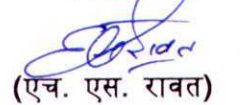 (एच. एस. रावत)